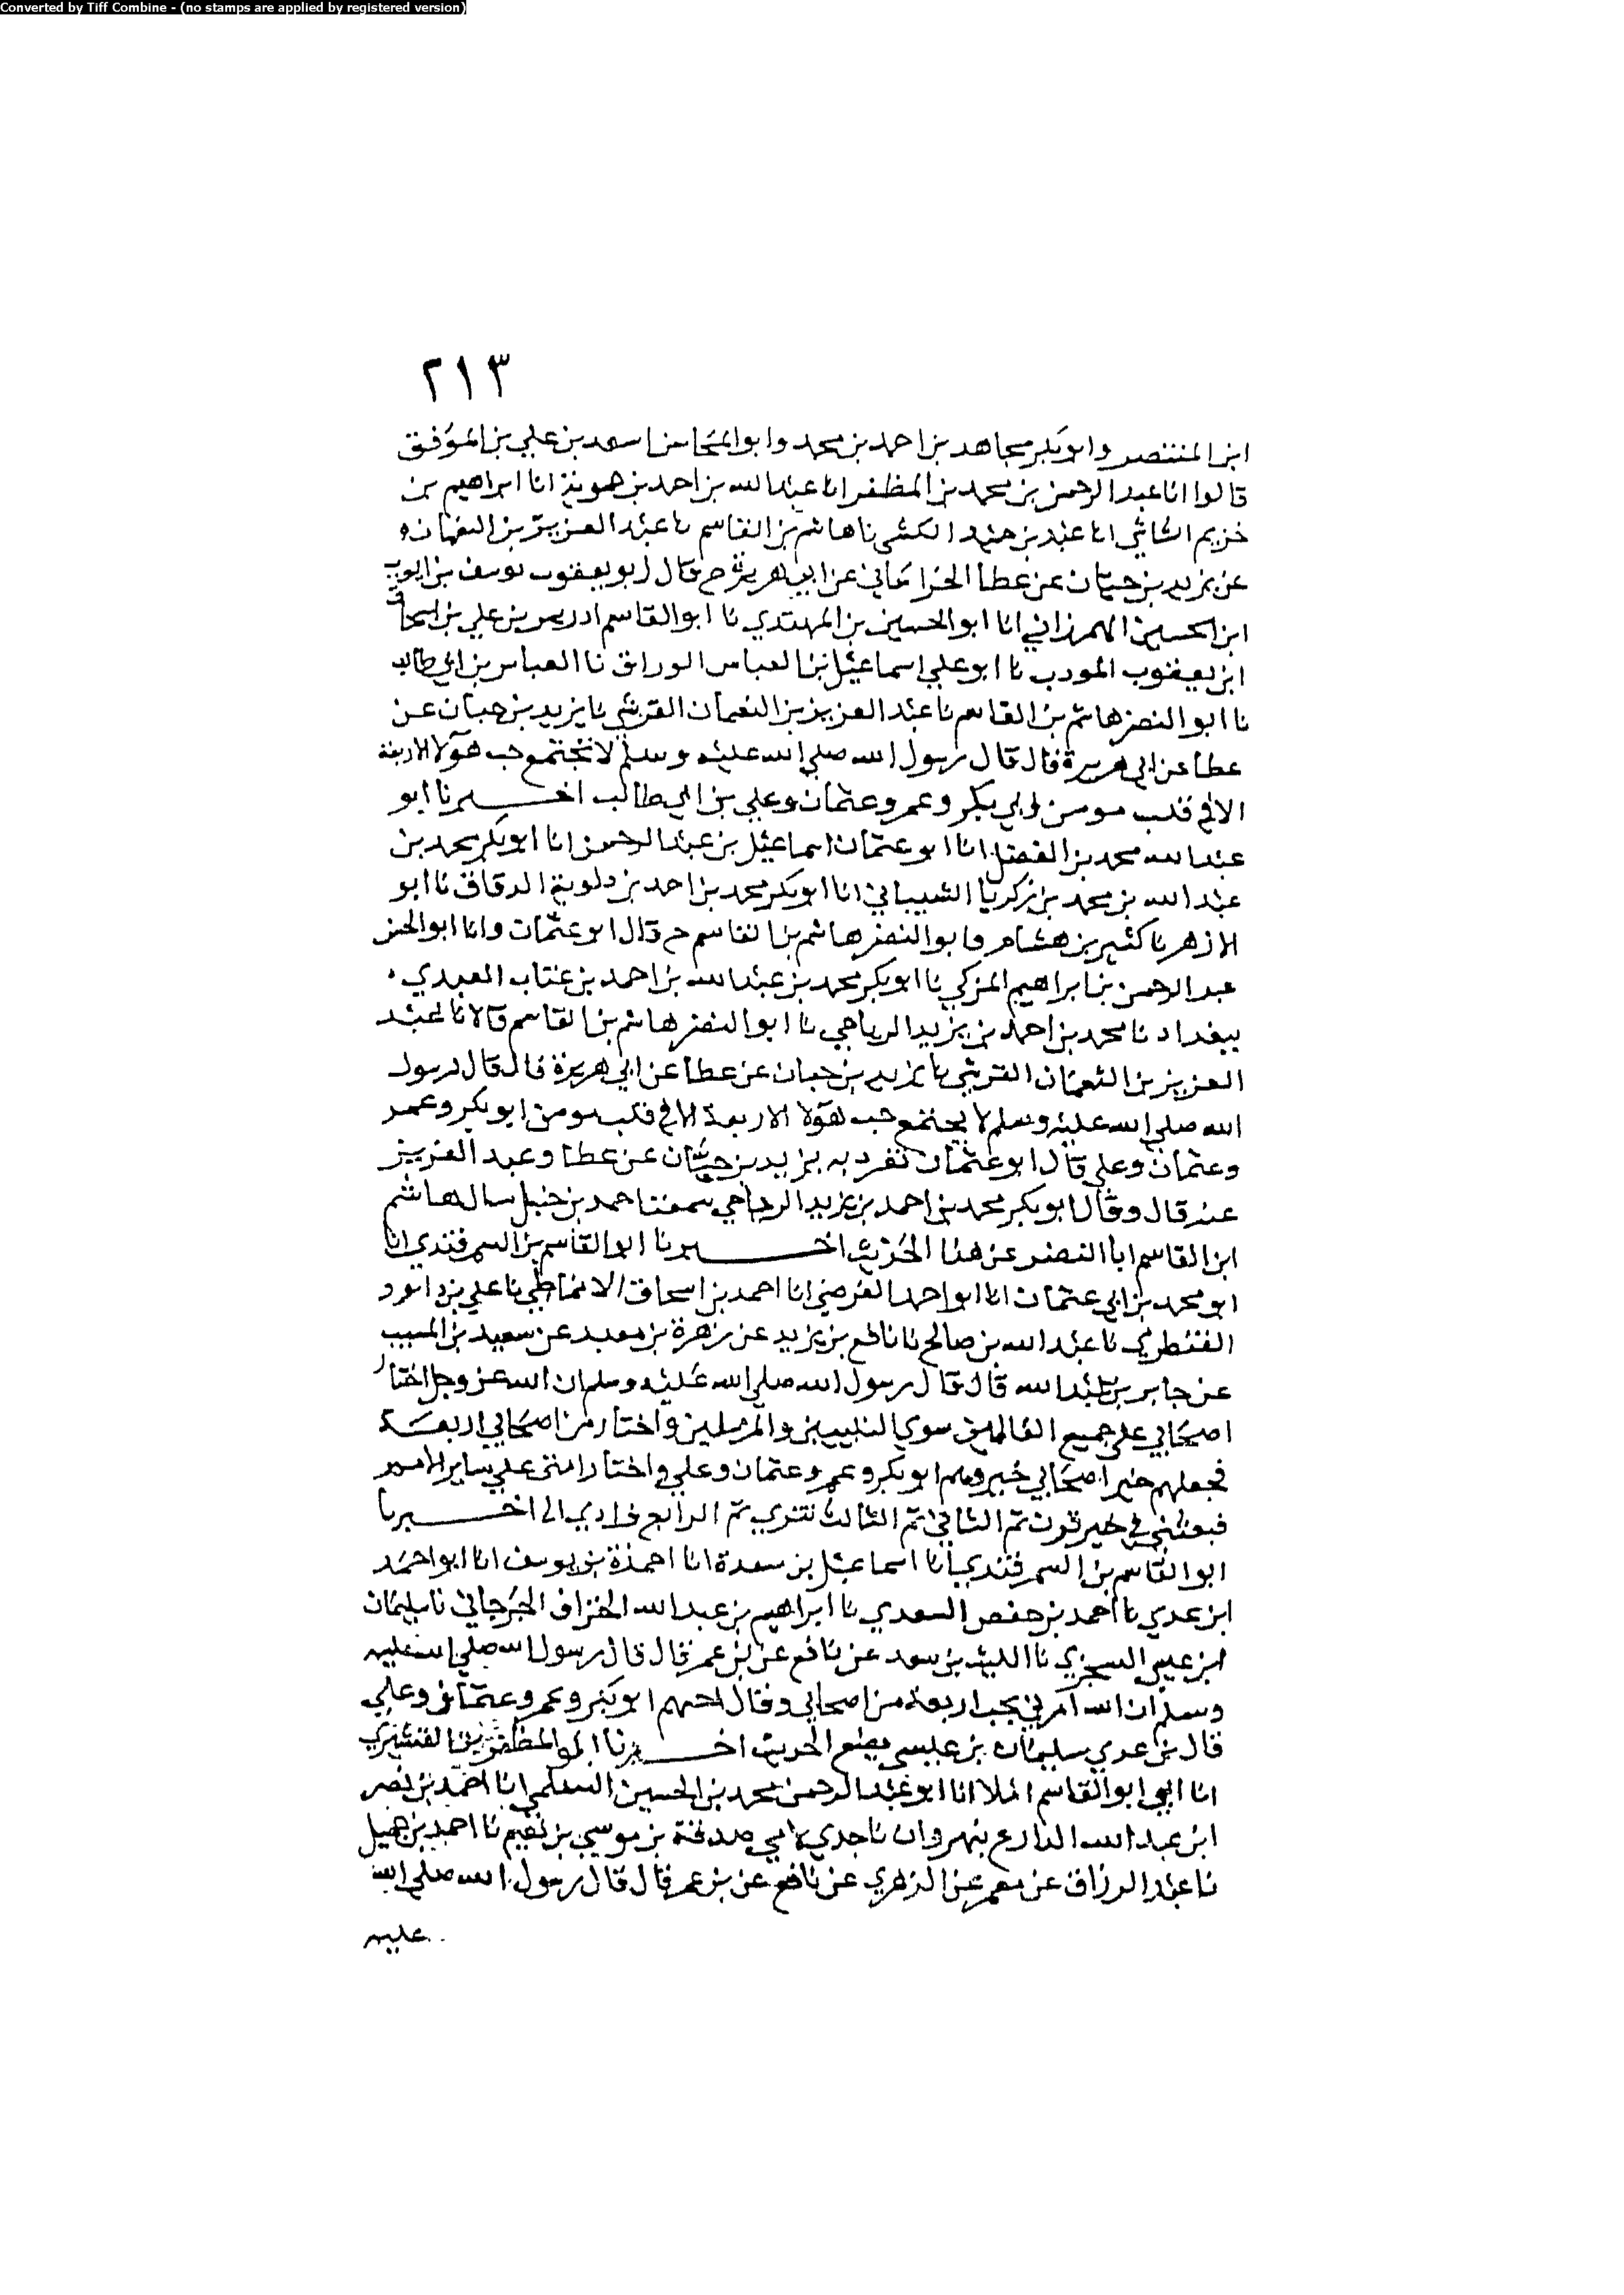 Converted by Tiff Combine - (no stamps are applied by registered version)
٢١٣
ابن المنتصر وابو بكر مجاهد بن احمد بن محمد وابو المحاسن اسعد بن علي بن الموفق
قالوا انا عبد الرحمن بن محمد بن المظفر انا عبد الله بن احمد بن حموية انا ابراهيم بن
خزيم الشاشي انا عبد بن حميد الكشي نا هاشم بن القاسم نا عبد العزيز بن النعمان
عن يزيد بن حيان عن عطا الخراساني عن ابي هريرة ح قال ابو يعقوب يوسف بن ايوب
ابن الحسين الهمرزاني انا ابو الحسين بن المهتدي نا ابو القاسم ادريس بن علي بن اسحاق
ابن يعقوب المودب نا ابو علي اسماعيل بن العباس الوراق نا العباس بن ابي طالب
نا ابو النضر هاشم بن القاسم نا عبد العزيز بن النعمان القرشي نا يزيد بن حبان عن
عطا عن ابي هريرة قال قال رسول الله صلي الله عليه وسلم لا تجتمع حب هولا الاربعة
الا في قلب مومن ابي بكر وعمر وعثمان وعلي بن ابي طالب اخبرنا ابو
عبد الله محمد بن الفضل انا ابو عثمان اسماعيل بن عبد الرحمن انا ابو بكر محمد بن
عبد الله بن محمد بن زكريا الشيباني انا ابو بكر محمد بن احمد بن دلوية الدقاق نا ابو
الازهر نا كثير بن هشام وابو النضر هاشم بن القاسم ح قال ابو عثمان وانا ابو الحسن
عبد الرحمن بن ابراهيم المزكي نا ابو بكر محمد بن عبد الله بن احمد بن عتاب العبدي
ببغداد نا محمد بن احمد بن يزيد الرياحي نا ابو النضر هاشم بن القاسم قالا نا عبد
العزيز بن النعمان القرشي نا يزيد بن حبان عن عطا عن ابي هريرة قال قال رسول
الله صلي الله عليه وسلم لا يجتمع حب هولا الاربعة الا في قلب مومن ابو بكر وعمر
وعثمان وعلي قال ابو عثمان تفرد به يزيد بن حيان عن عطا وعبد العزيز
عنه قال وقال ابو بكر محمد بن احمد بن يزيد الرياحي سمعنا احمد بن حنبل سال هاشم
ابن القاسم ابا النضر عن هذا الحديث اخبرنا ابو القاسم بن السمرقندي انا
ابو محمد بن ابي عثمان انا ابو احمد الفرضي انا احمد بن اسحاق الانماطي نا علي بن داود
القنطري نا عبد الله بن صالح نا نافع بن يزيد عن زهرة بن معبد عن سعيد بن المسيب
عن جابر بن عبد الله قال قال رسول الله صلي الله عليه وسلم ان الله عز وجل اختار
اصحابي علي جميع العالمين سوي النبيين والمرسلين واختار من اصحابي اربعة
فجعلهم خير اصحابي خير وهم ابو بكر وعمر وعثمان وعلي واختار امتي علي ساير الامم
فبعثني في خير قرون ثم الثاني ثم الثالث تتري ثم الرابع فرادي الي اخبرنا
ابو القاسم بن السمرقندي انا اسماعيل بن سعدة انا احمزة بن يوسف انا ابو احمد
ابن عدي نا احمد بن حفص السعدي نا ابراهيم بن عبد الله الجرجاني نا سليمان
ابن عيسي السجزي نا الليث بن سعد عن نافع عن بن عمر قال قال رسول الله صلي الله عليه
وسلم ان الله امرني بحب اربعة من اصحابي وقال احبهم ابو بكر وعمر وعثمان وعلي
قال بن عدي سليمان بن عيسي يضع الحديث اخبرنا ابو المظفر بن القشيري
انا ابي ابو القاسم املا انا ابو عبد الرحمن محمد بن الحسين السلمي انا احمد بن نصر
ابن عبد الله الدارع بنهروان نا جدي لامي صدقة بن موسي بن تميم نا احمد بن جميل
نا عبد الرزاق عن معمر عن الزهري عن نافع عن بن عمر قال قال رسول الله صلي الله
عليه